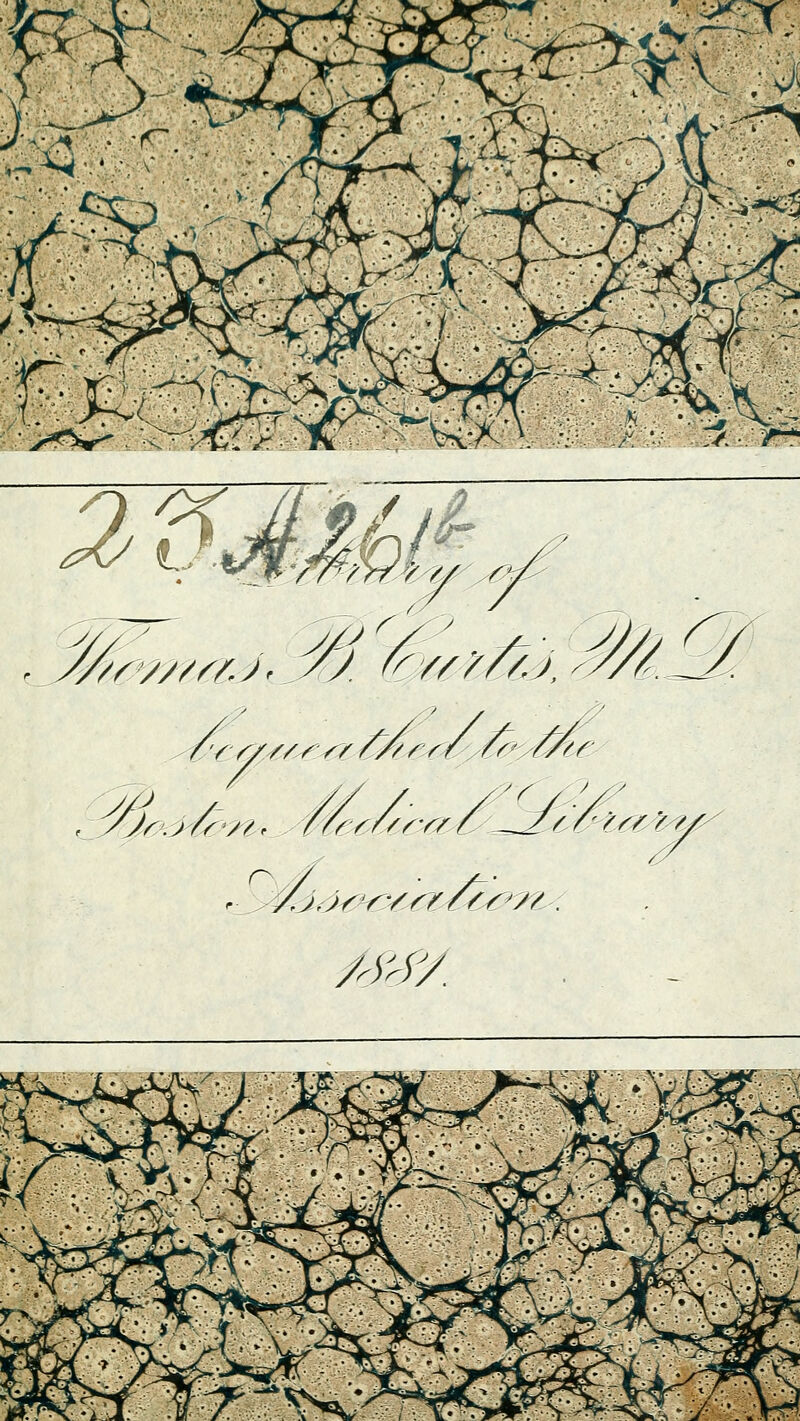 23 A 261b
Library of
Thomas B. Curtis, M. D.
bequeathed to the
Boston Medical Library
Association.
1881.